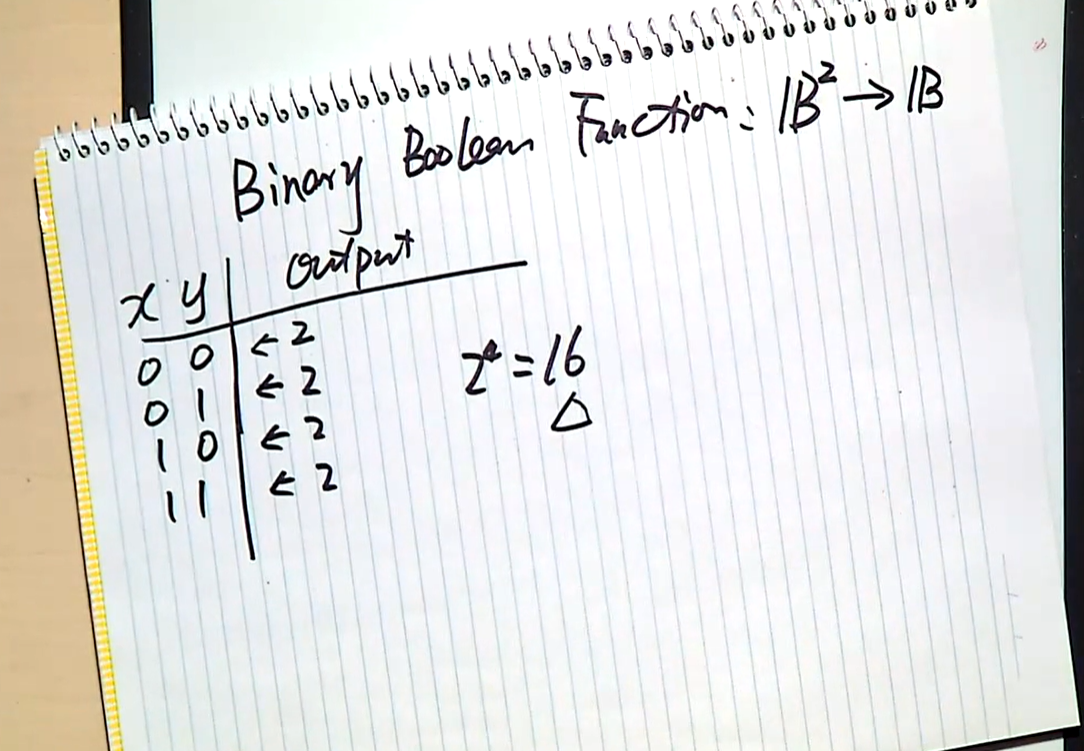 Binary Boolean Function: 𝔹² → 𝔹
x y output
0 0 ← 2
0 1 ← 2
1 0 ← 2
1 1 ← 2
2⁴ = 16
△